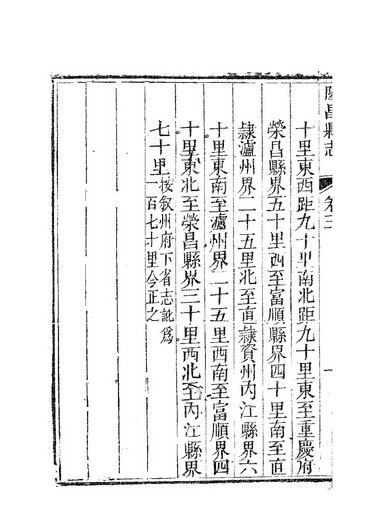 隆昌縣志 卷三
十里東西距九十里南北距九十里東至重慶府
榮昌縣界五十里西至富順縣界四十里南至直
隸瀘州界二十五里北至直隸資州內江縣界六
十里東南至瀘州界二十五里西南至富順界四
十里東北至榮昌縣界三十里西北至內江縣界
七十里按叙州府下省志訛爲
一百七十里今正之